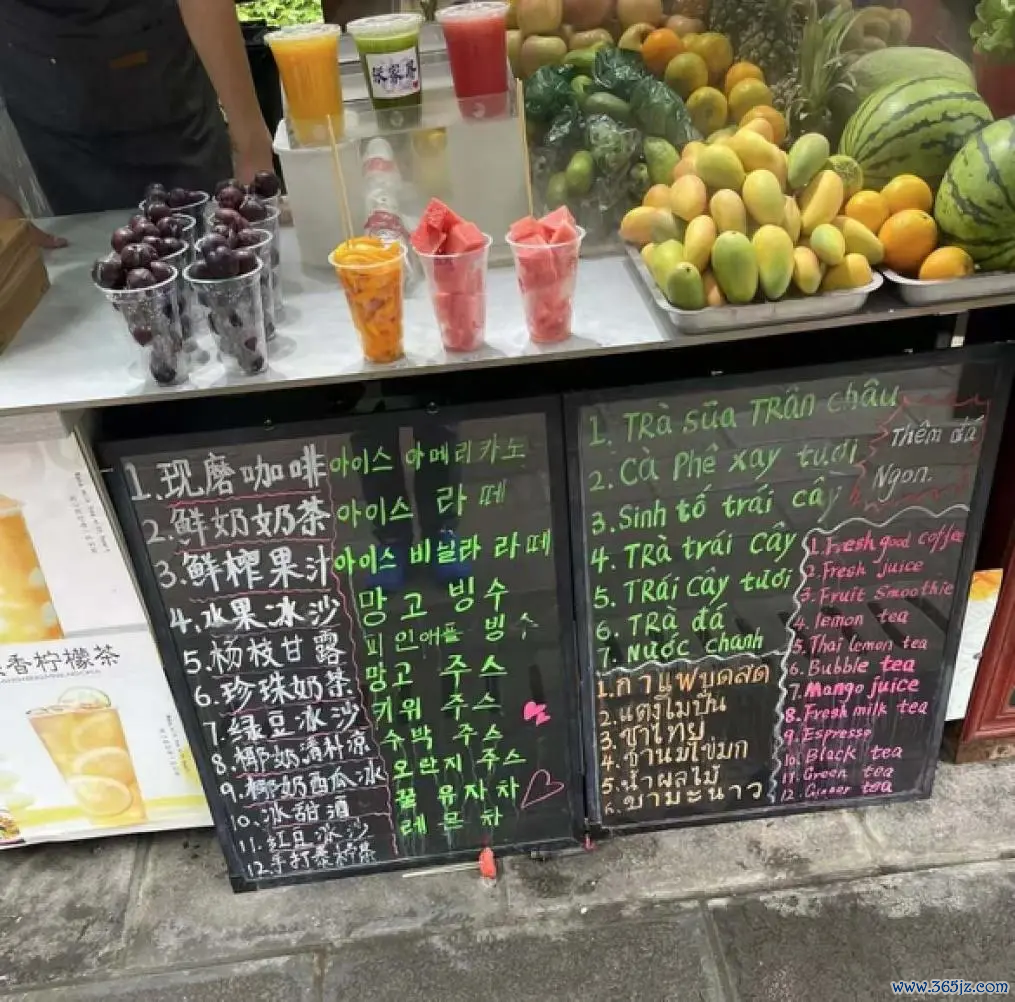 张家界
1.现磨咖啡
2.鲜奶奶茶
3.鲜榨果汁
4.水果冰沙
5.杨枝甘露
6.珍珠奶茶
7.绿豆冰沙
8.椰奶清朴凉
9.椰奶西瓜冰
10.冰甜酒
11.红豆冰沙
12.手打柠茶
아이스 아메리카노
아이스 라떼
아이스 비닐라 라떼
망고 빙수
피인애플 빙수
망고 주스
키위 주스
수박 주스
오란지 주스
꿀 유자차
레몬 차
1. TRà sữa TRân châu
2. Cà Phê xay tươi
3. Sinh tố trái cây
4. TRà trái cây
5. TRái cây tươi
6. TRà đá
7. Nước chanh
Thêm đá
Ngon.
1. กาแฟบูดสด
2. แตงโมปั่น
3. ชาไทย
4. ชานมไข่มุก
5. น้ำผลไม้
6. ชามะนาว
1. Fresh good coffee
2. Fresh juice
3. Fruit Smoothie
4. lemon tea
5. Thai lemon tea
6. Bubble tea
7. Mango juice
8. Fresh milk tea
9. Espresso
10. Black tea
11. Green tea
12. Ginger tea
香柠檬茶
www.365jz.com